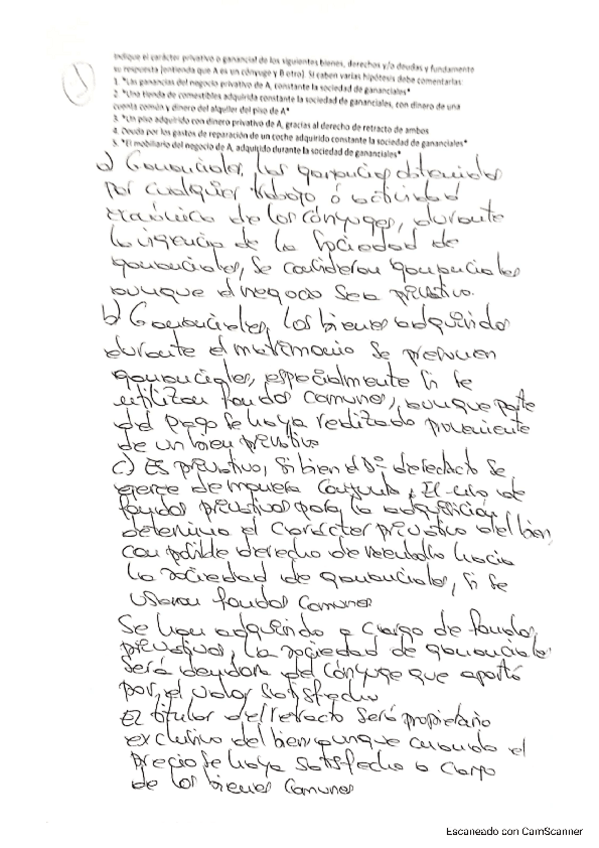 Indique el carácter privativo o ganancial de los siguientes bienes, derechos y/o deudas y fundamente
su respuesta (entienda que A es un cónyuge y B otro). Si caben varias hipótesis debe comentarlas:
1. *Las ganancias del negocio privativo de A, constante la sociedad de gananciales*
2. *Una tienda de comestibles adquirida constante la sociedad de gananciales, con dinero de una
cuenta común y dinero del alquiler del piso de A*
3. *Un piso adquirido con dinero privativo de A, gracias al derecho de retracto de ambos
4. Deuda por los gastos de reparación de un coche adquirido constante la sociedad de gananciales*
5. *El mobiliario del negocio de A, adquirido durante la sociedad de gananciales*
a) Gananciales, las ganancias obtenidas
por cualquier trabajo ó actividad
económica de los cónyuges, durante
la vigencia de la Sociedad de
gananciales, se consideran gananciales
aunque el negocio sea privativo.
b) Gananciales, los bienes adquiridos
durante el matrimonio se presumen
gananciales, especialmente si se
utilizan fondos comunes, aunque parte
del pago se haya realizado proveniente
de un bien privativo
c) Es privativo, si bien el dº de retracto se
ejerce de manera conjunta, El uso de
fondos privativos para la adquisición,
determina el carácter privativo del bien,
con posible derecho de reembolso hacia
la sociedad de gananciales, si se
usaran fondos comunes
Se han adquirido a cargo de fondos
privativos, la sociedad de gananciales
será deudora del cónyuge que aportó
por el valor satisfecho
El titular del retracto será propietario
exclusivo del bien aunque cuando el
precio se haya satisfecho a cargo
de los bienes comunes
Escaneado con CamScanner